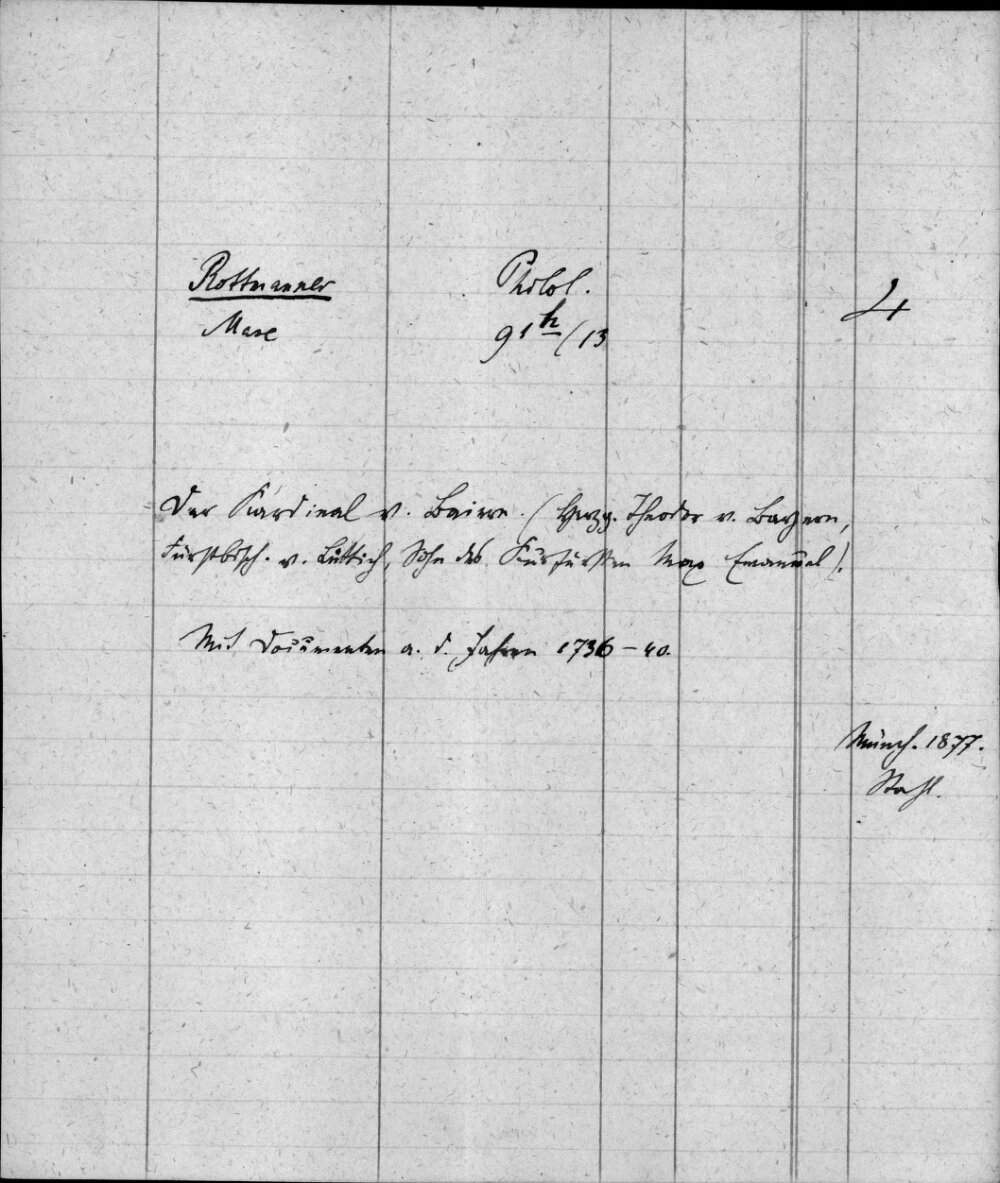 Rottmanner
Max
Philol.
91h/13
4
Der Kardinal v. Baiern. (Herzg. Theodor v. Bayern,
Fürstbisch. v. Lüttich, Sohn des Kurfürsten Max Emanuel).
Mit Documenten a. d. Jahren 1736-40.
Münch. 1877.
Stahl.